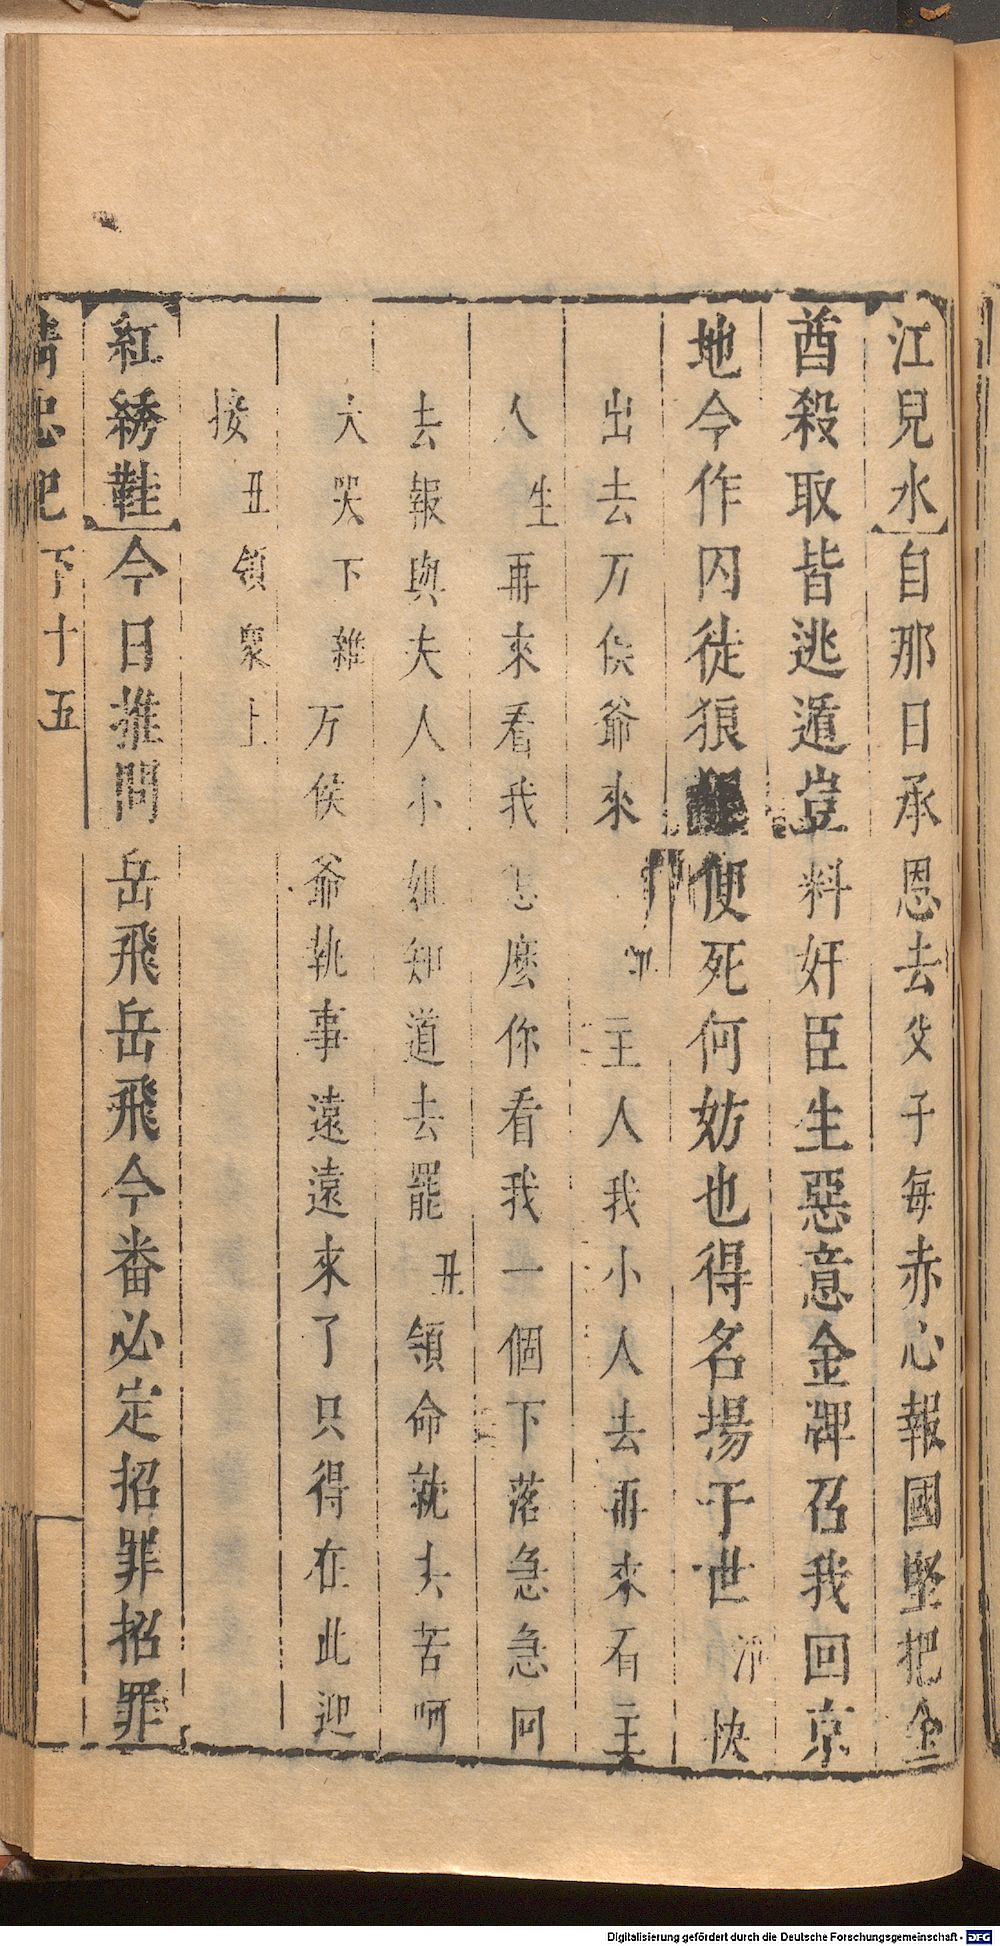 江兒水自那日承恩去父子每赤心報國堅把金
酋殺取皆逃遁豈料奸臣生惡意金牌召我回京
地今作囚徒狼便死何妨也得名揚于世淨快
出去万侯爺來主人我小人去再來看主
人生再來看我怎麽你看我一個下落急急回
去報與夫人小姐知道去罷丑領命就去苦呵
大哭下雜万侯爺執事遠遠來了只得在此迎
接丑領衆上
紅綉鞋今日推問岳飛岳飛今番必定招罪招罪
精忠記下十五
Digitalisierung gefördert durch die Deutsche Forschungsgemeinschaft - DFG